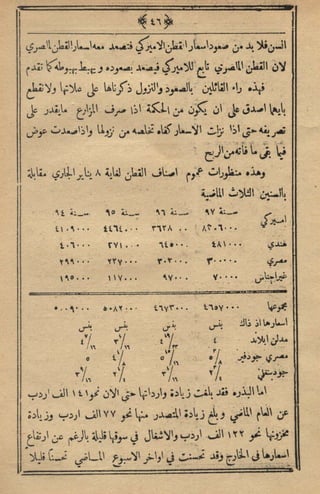 ﴿٤٦﴾
السن فلا بد من صعود اسعار القطن الاميركي فتصعد معه اسعار القطن المصري
لان القطن المصري تابع للاميركي فيصعد بصعوده ويهبط بهبوطه كما تقدم
فهذه راء القائلين بالصعود والنزول ذكرناها على علاتها ولا نقطع
بايهما اصدق على ان يكون من الحكمة اذا صرف المزارع ما يقدر على
تصريفه حتى اذا نزلت الاسعار كفاه تخلصه من نزولها واذا صعدت عوض
فيما بقى ما فاته من الربح
وهذه منظورات عموم اصناف القطن لغاية ٨ يناير الجاري مقابلة
بالسنين الثلاث الماضية
سنة ٩٧ سنة ٩٦ سنة ٩٥ سنة ٩٤
اميركي ٣٦٣٨٠٠٠ ٤٤٦٤٠٠٠ ٤١٠٩٠٠٠
هندي ٤٨١٠٠٠ ٦٤٥٠٠٠ ٢٧١٠٠٠ ٤٠٦٠٠٠
مصري ٣٠٠٠٠٠ ٣٠٢٠٠٠ ٢٢٧٠٠٠ ٢٩٩٠٠٠
غير اجناس ٧٠٠٠٠ ٩٧٠٠٠ ١١٧٠٠٠ ١٩٥٠٠٠
مجموعها ٤٦٥٧٠٠٠ ٤٦٧٣٠٠٠ ٥٠٨٢٠٠٠ ٥٠٠٩٠٠٠
اسعارها اذ ذاك بنس بنس بنس بنس
مدلن ابلاند
مصري جودفير
اما البذره فقد بلغت زيادة وارداتها حتى الان نحو ١٤١ الف اردب
عن العام الماضي وبلغ زيادة المتصدر منها نحو ٧٧ الف اردب وزيادة
مخزونها نحو ١٢٢ الف اردب والاشغال في سوقها قليلة بالرغم عن ارتفاع
اسعارها في الخارج وقد تحسنت في اواخر الاسبوع الماضي تحسنا قليلا